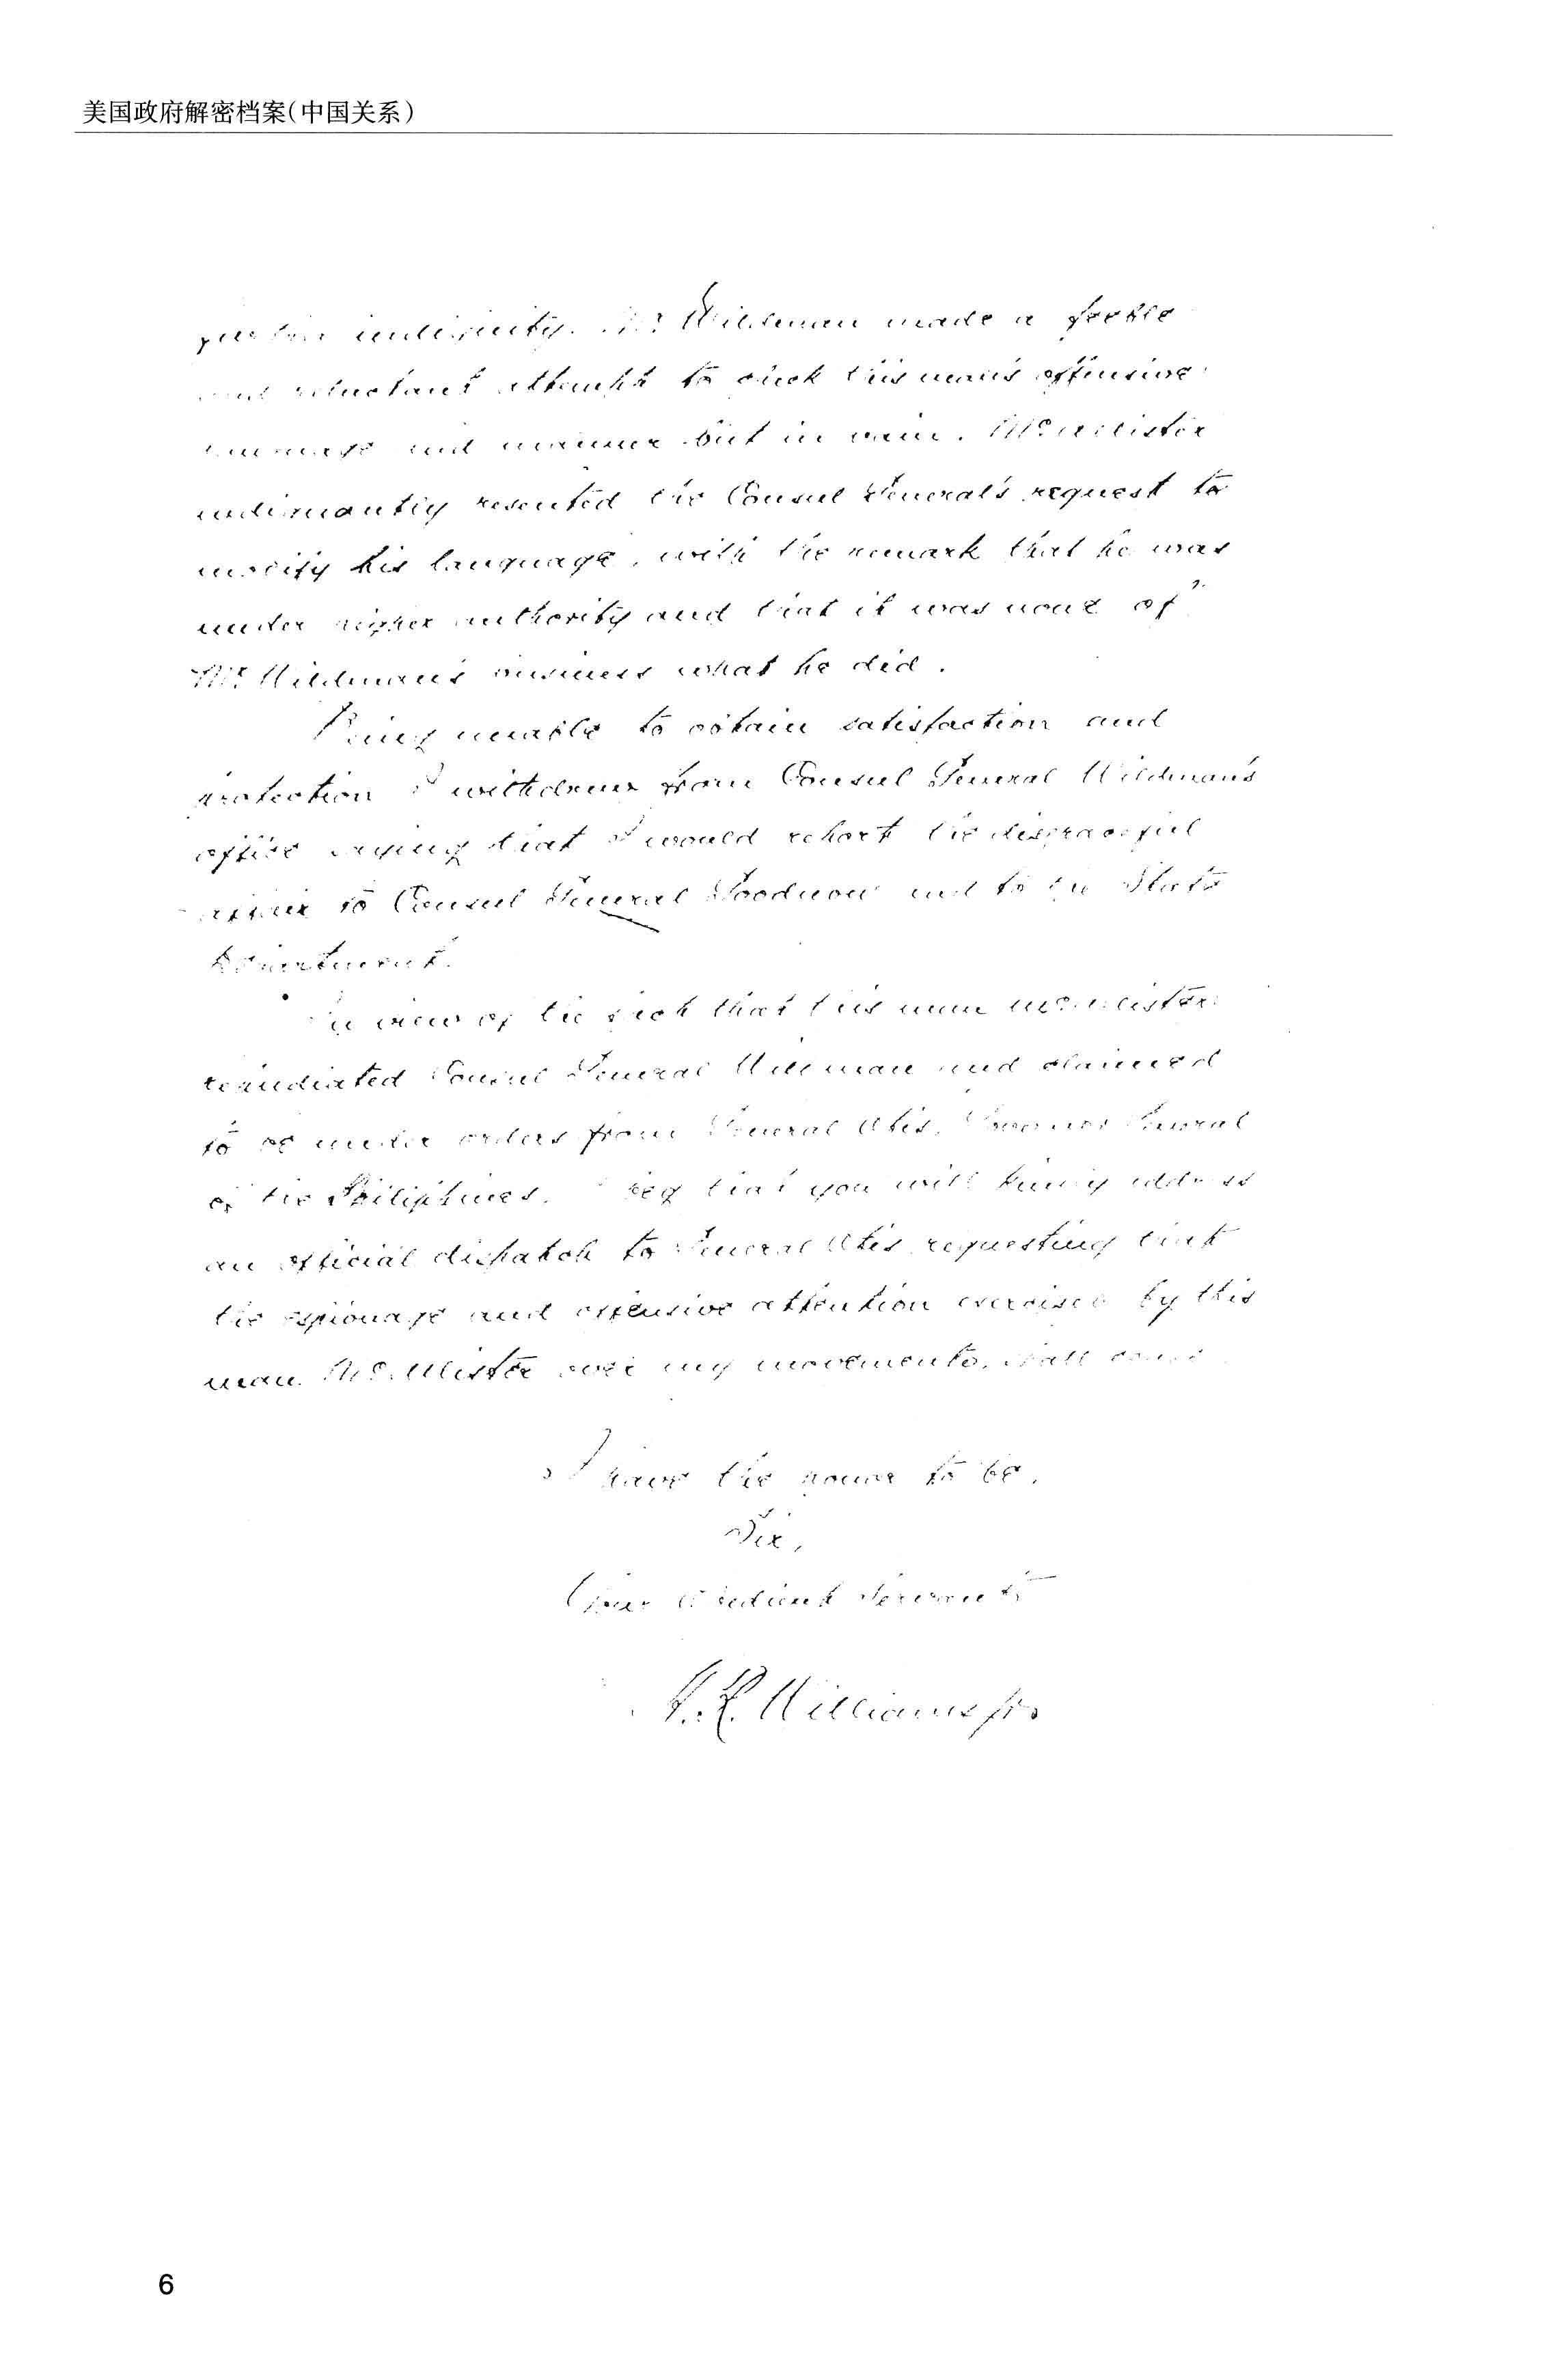 美国政府解密档案(中国关系)
further indignity. Mr Wildman made a feeble
and reluctant attempt to check this man's offensive
language and manner but in vain. McAllister
indignantly resented the Consul General's request to
modify his language, with the remark that he was
under higher authority and that it was none of
Mr Wildman's business what he did.
Being unable to obtain satisfaction and
protection I withdrew from Consul General Wildman's
office saying that I would report the disgraceful
affair to Consul General Goodnow and to the State
Department.
In view of the fact that this man McAllister
repudiated Consul General Wildman and claimed
to be under orders from General Otis, Governor General
of the Philippines, I beg that you will kindly address
an official dispatch to General Otis requesting that
the espionage and offensive attention exercised by this
man McAllister over my movements, shall cease
I have the honor to be,
Sir,
Your Obedient Servant
Williams Jr.
6